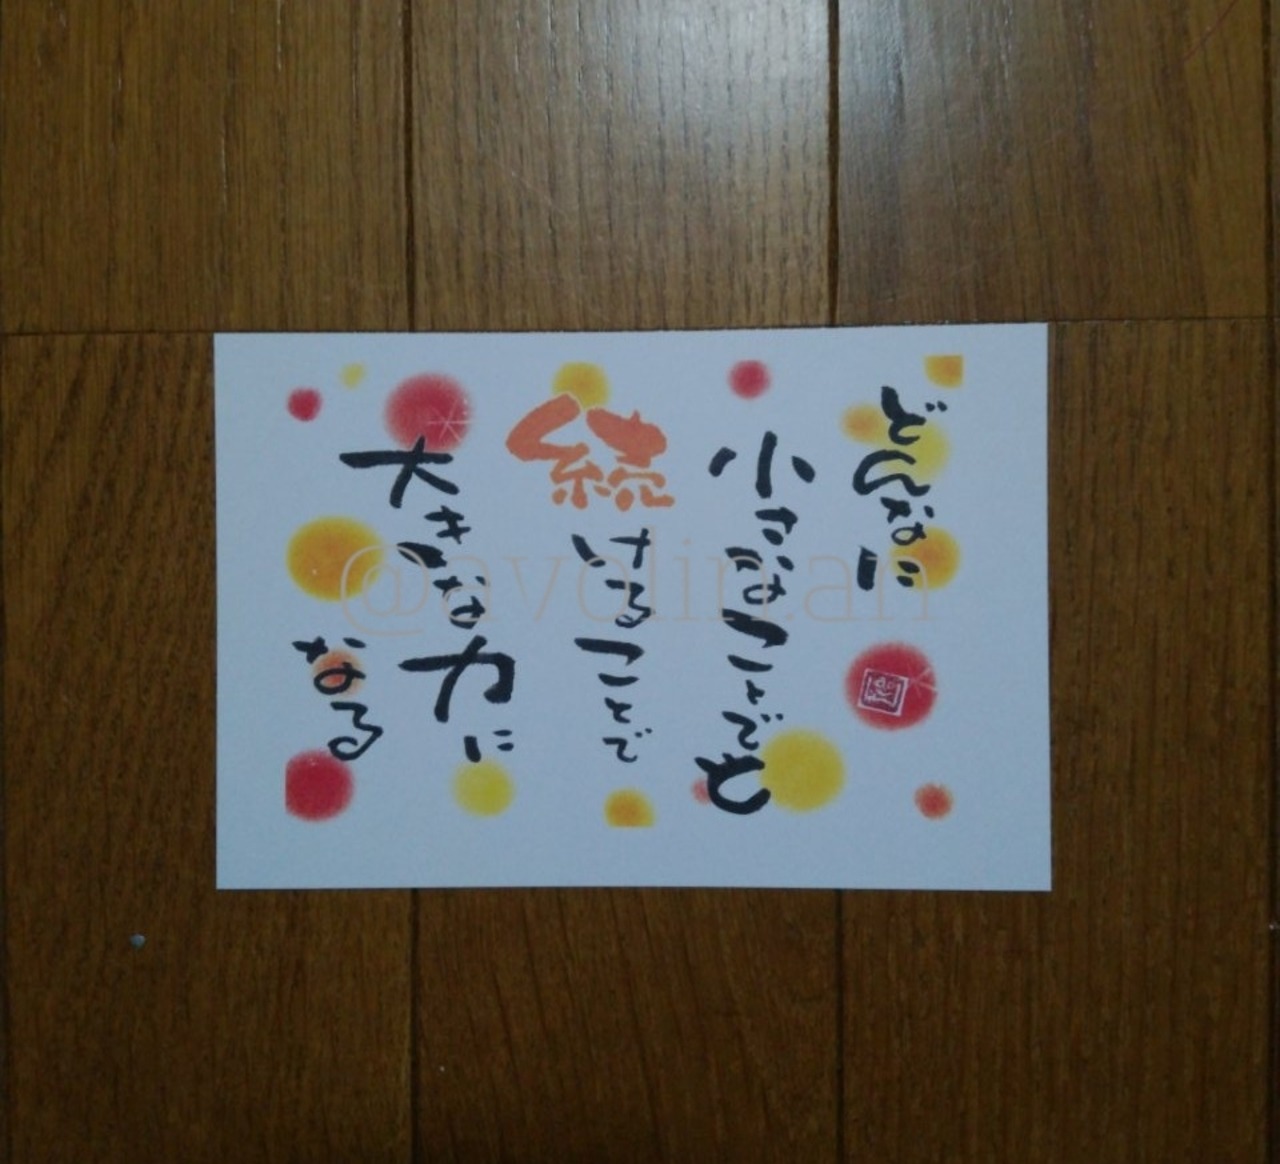 どんなに
小さなことでも
続けることで
大きな力に
なる
@avolin.an